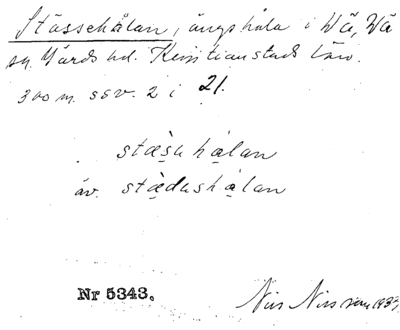 Stässehålan, ängshåla i Wä, Wä
sn. Gärds hd. Kristianstads län.
300 m. ssv. 2 i 21.
stæ̀sɩhålan
äv. stæ̀dashålan
Nr 5343.
Nils Nilsson 1937.